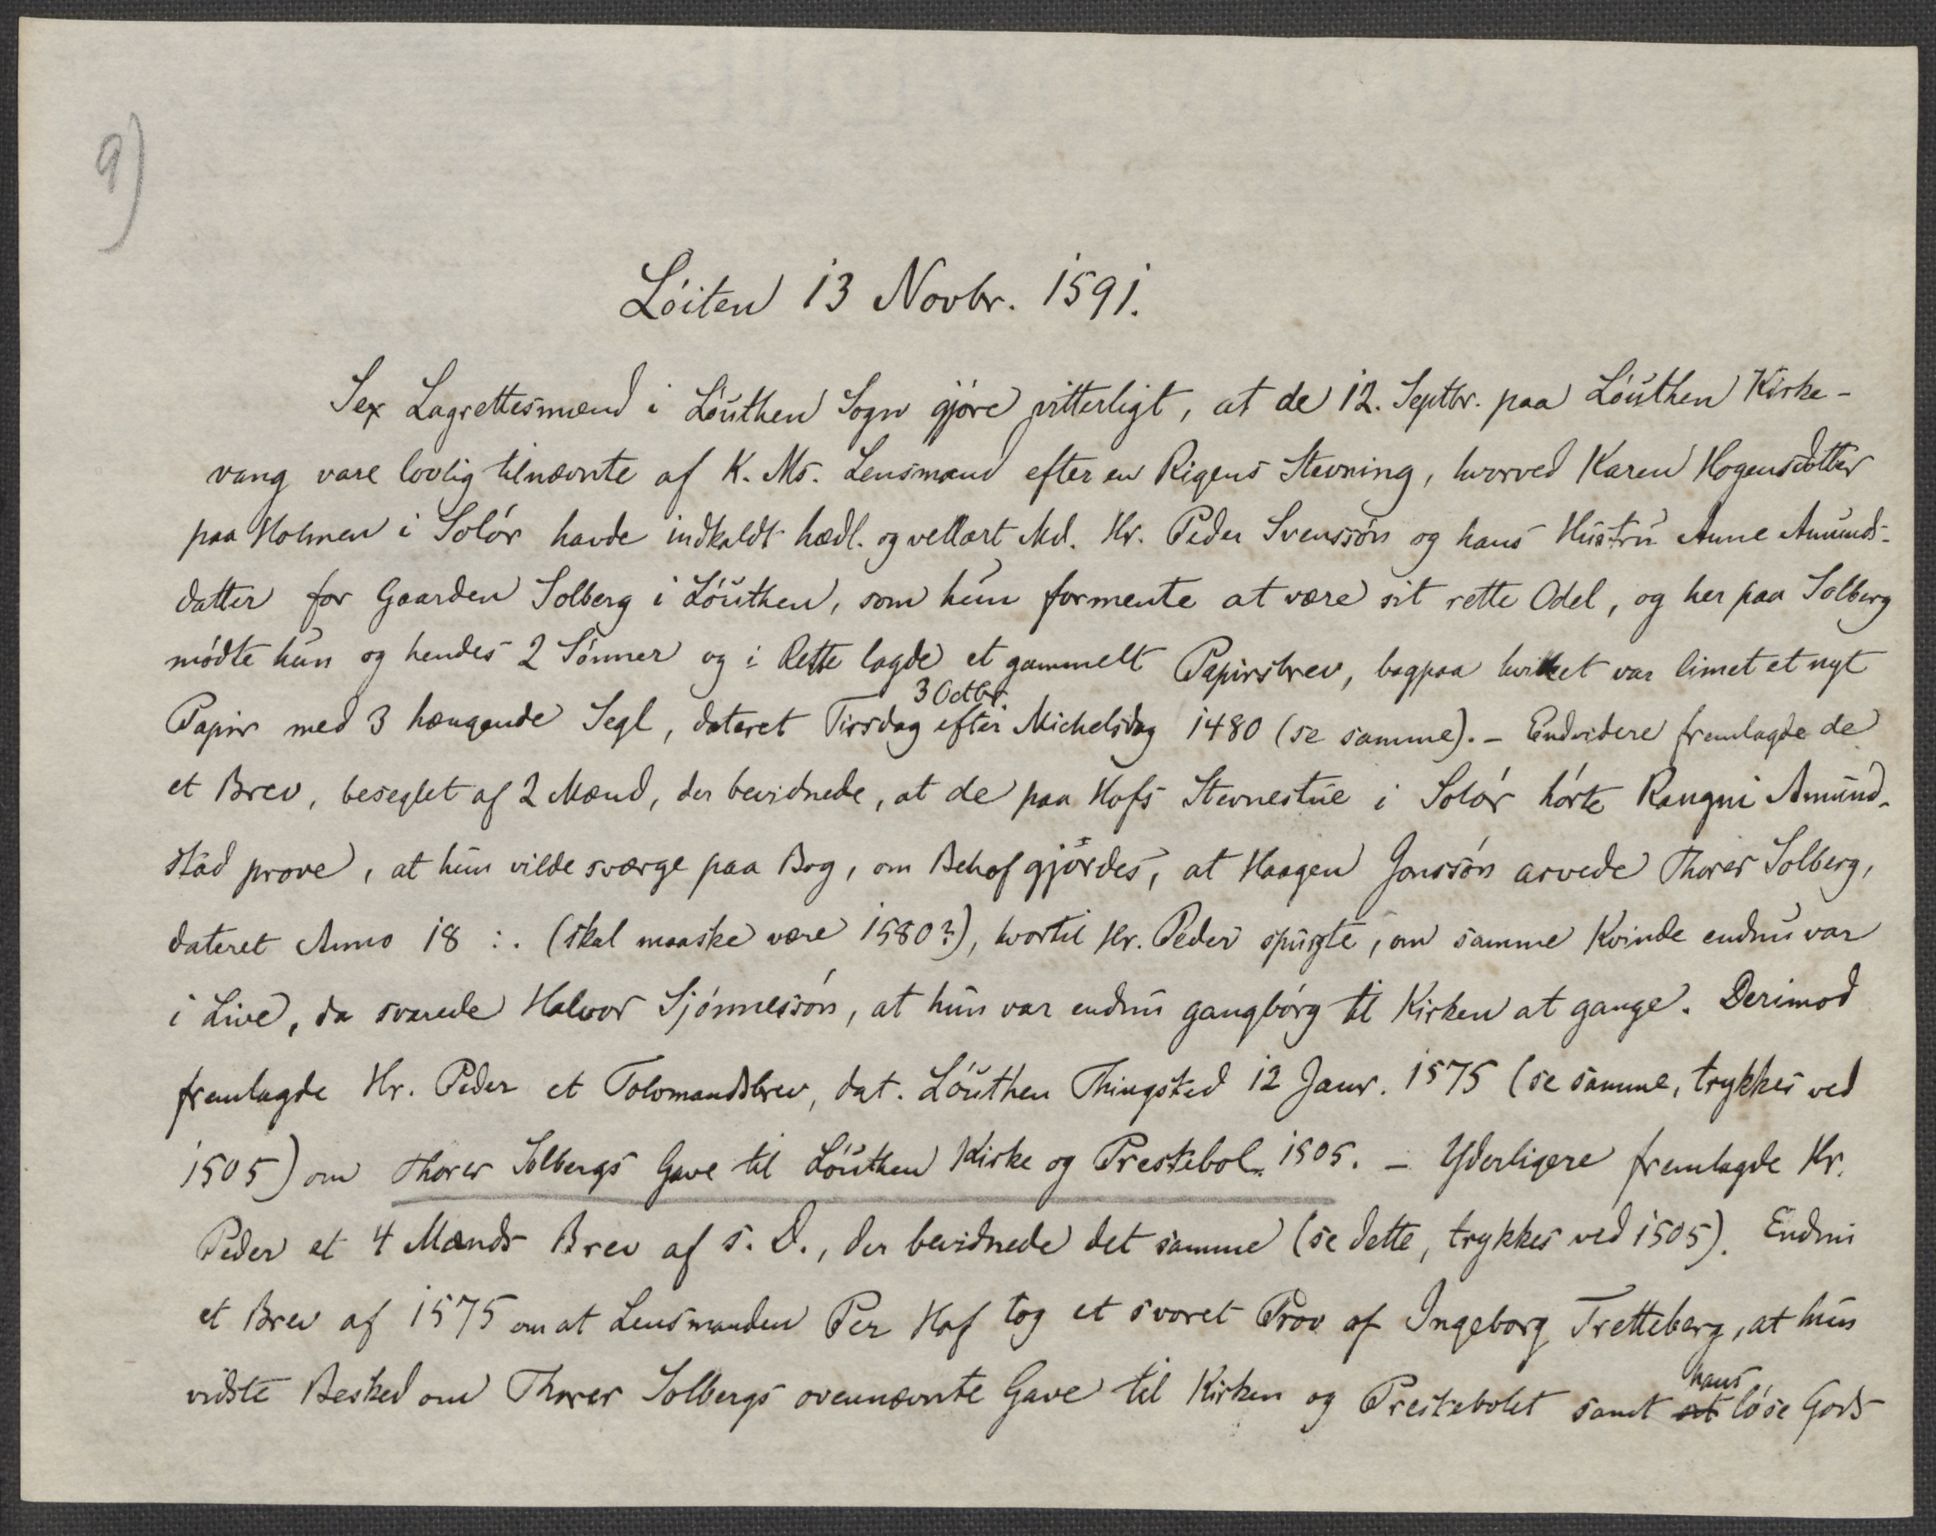 9)
Löiten 13 Novbr. 1591.
Sex Lagrettesmænd i Löuthen Sogn gjöre vitterligt, at de 12. Septbr. paa Löuthen Kirke-
vang vare lovlig tilnævnte af K. Ms. Lensmand efter en Rigens Stevning, hvorved Karen Hogensdotter
paa Holmen i Solör havde indkaldt hædl. og vellært Md. Hr. Peder Svenssön og hans Hustru Anne Amunds-
datter for Gaarden Solberg i Löuthen, som hun formente at være sit rette Odel, og her paa Solberg
mödte hun og hendes 2 Sönner og i Rette lagde et gammelt Papirsbrev, bagpaa hvilket var limet et nyt
3 Octbr.
Papir med 3 hængende Segl, dateret Tirsdag efter Michelsdag 1480 (se samme). – Endvidere fremlagde de
et Brev, beseglet af 2 Mænd, der bevidnede, at de paa Hofs Stevnestue i Solör hörte Rangni Amund-
stad prove, at hun vilde sværge paa Bog, om Behof gjördes, at Haagen Jonssön arvede Thorer Solberg,
dateret Anno 18 :. (skal maaske være 1580?), hvortil Hr. Peder spurgte, om samme Kvinde endnu var
i Live, da svarede Halvor Sjönnessön, at hun var endnu gangbörg til Kirken at gange. Derimod
fremlagde Hr. Peder et Tolvmandsbrev, dat. Löuthen Thingsted 12 Janr. 1575 (se samme, trykkes ved
1505) om Thorer Solbergs Gave til Löuthen Kirke og Prestebol 1505. – Yderligere fremlagde Hr.
Peder et 4 Mænds Brev af s. D., der bevidnede det samme (se dette, trykkes ved 1505). Endnu
et Brev af 1575 om at Lensmanden Per Hof tog et svoret Prov af Ingeborg Tretteberg, at hun
vidste Besked om Thorer Solbergs ovennævnte Gave til Kirken og Prestebolet samt sit hans löse Gods